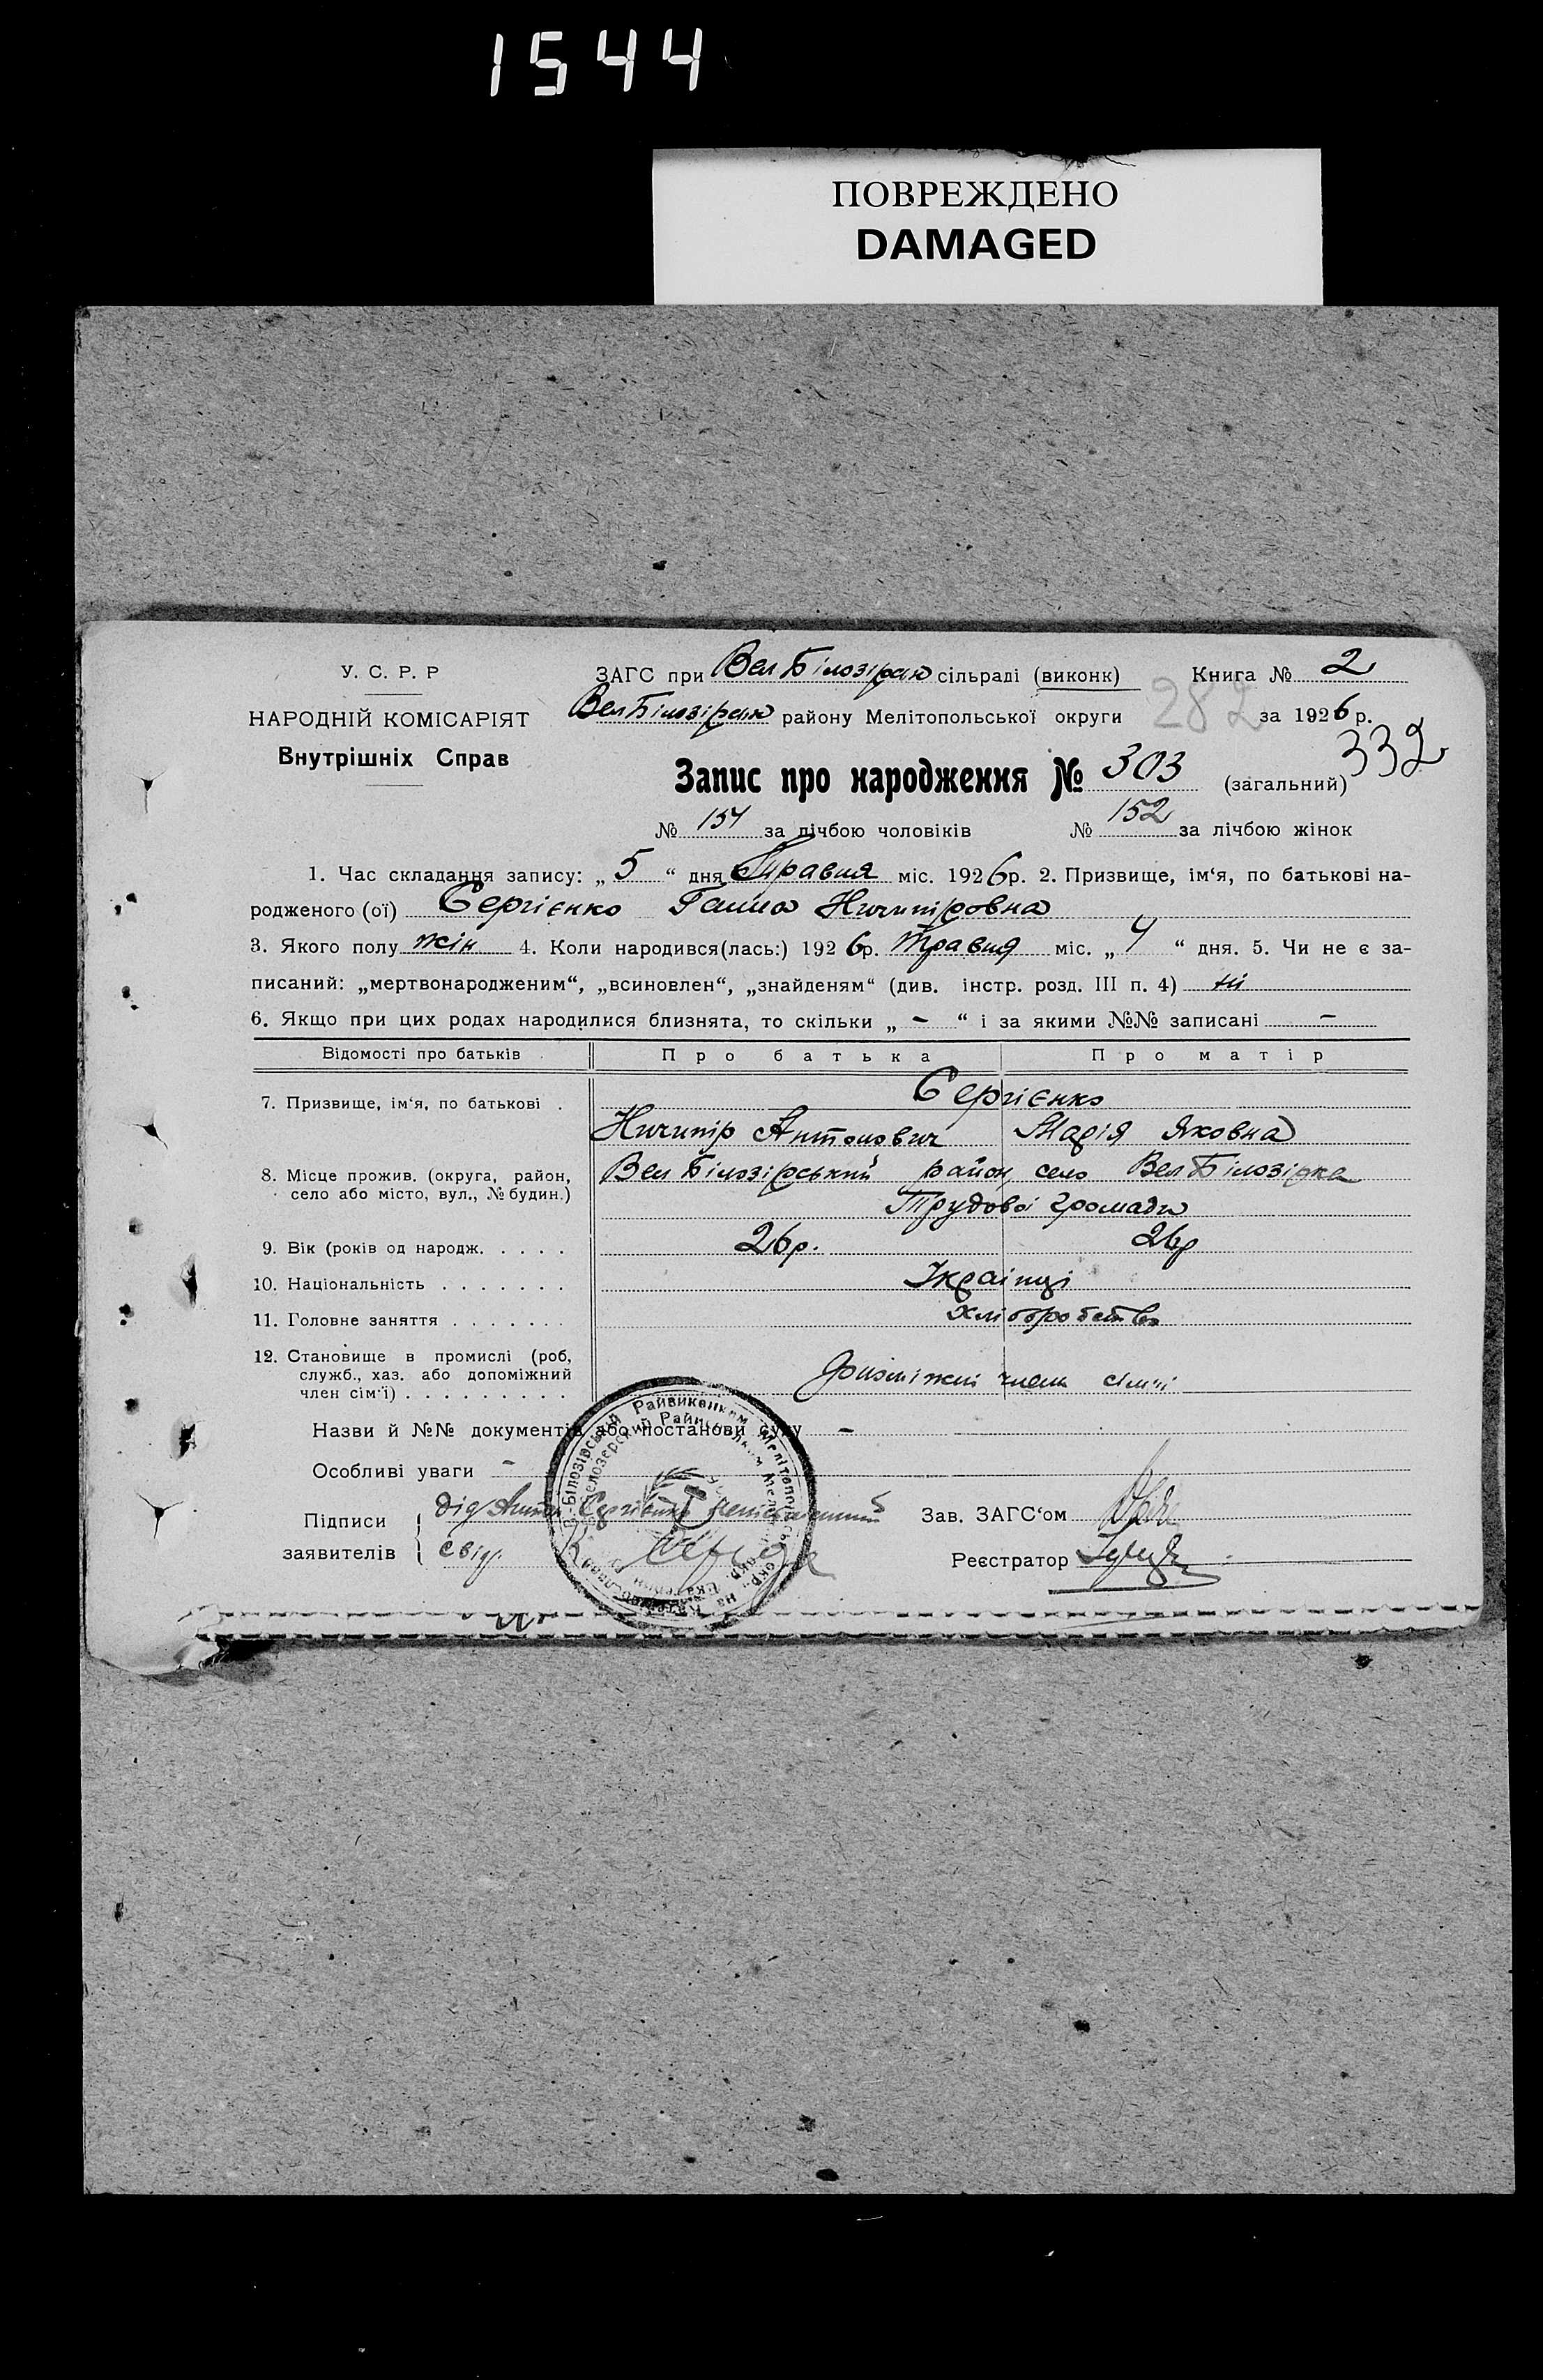 1544
ПОВРЕЖДЕНО
DAMAGED
У. С. Р. Р
НАРОДНІЙ КОМІСАРІЯТ
Внутрішніх Справ
ЗАГС при Вел Білозірск сільраді (виконк) Книга № 2
Вел Білозірск району Мелітопольської округи 282 за 1926 р.
332
Запис про народження № 303 (загальний)
№ 151 за лічбою чоловіків № 152 за лічбою жінок
1. Час складання запису: „ 5 “ дня Травня міс. 1926 р. 2. Призвище, ім‘я, по батькові на-
родженого (ої) Сергієнко Ганна Ничипіровна
3. Якого полу жін 4. Коли народився(лась:) 1926р. Травня міс. „ 4 “ дня. 5. Чи не є за-
писаний: „мертвонародженим“, „всиновлен“, „знайденям“ (див. інстр. розд. III п. 4) ні
6. Якщо при цих родах народилися близнята, то скільки „ - “ і за якими №№ записані -
Відомості про батьків Про батька Про матір
7. Призвище, ім‘я, по батькові . Сергієнко
Ничипір Антонович Марія Яковна
8. Місце прожив. (округа, район, село або місто, вул., № будин.) Вел Білозірський район, село Вел Білозірка
Трудової громади
9. Вік (років од народж. . . . . 26р. 26р
10. Національність . . . . . . . Українці
11. Головне заняття . . . . . . . Хліборобство
12. Становище в промислі (роб,
служб., хаз. або допоміжний
член сім‘ї) . . . . . . . . . член сімї
Назви й №№ документів або постанови суду -
Особливі уваги -
Підписи
заявителів
Дід Антон Сергієнко неписьменний
свід.
Зав. ЗАГС‘ом
Реєстратор